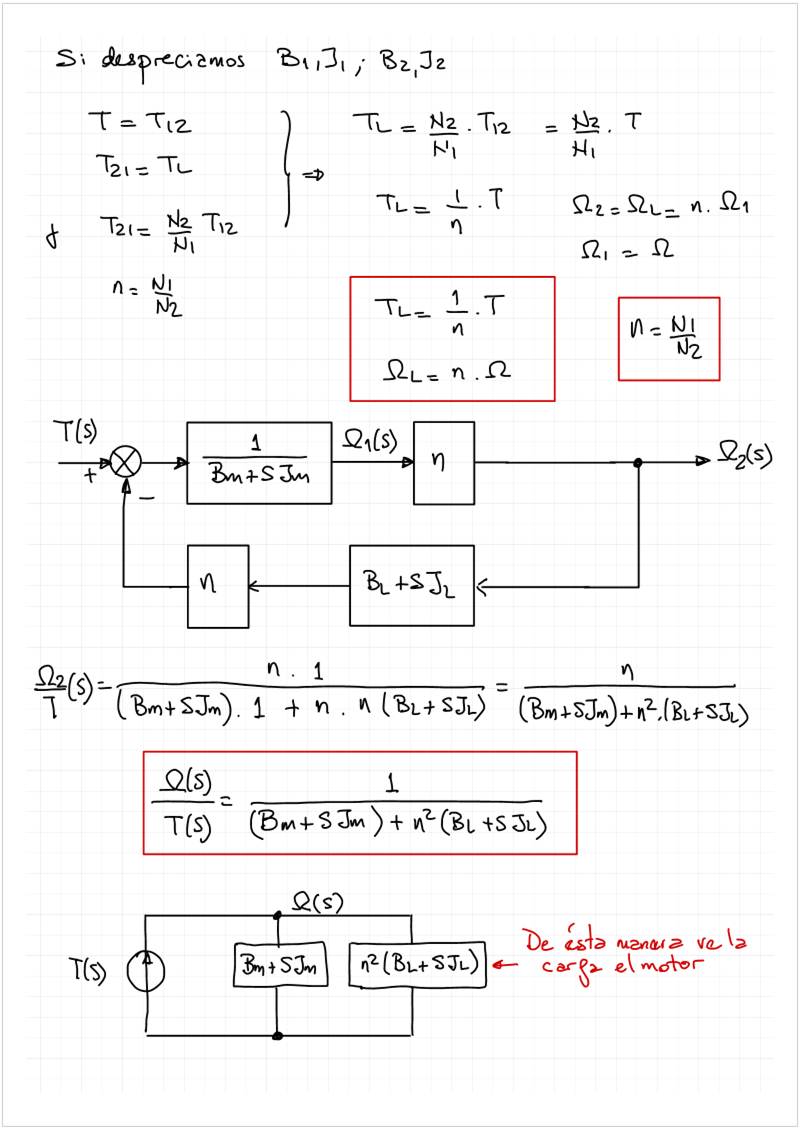 Si despreciamos B1, J1 ; B2, J2
T = T12
T21 = TL
y T21 = N2/N1 T12
n = N1/N2
⇒ TL = N2/N1 . T12 = N2/N1 . T
TL = 1/n . T
Ω2 = ΩL = n . Ω1
Ω1 = Ω
TL = 1/n . T
ΩL = n . Ω
n = N1/N2
T(s)
+
−
1/(Bm + SJm)
Ω1(s)
n
Ω2(s)
n
BL + SJL
Ω2/T (s) = n . 1/((Bm + SJm) . 1 + n . n (BL + SJL)) = n/((Bm + SJm) + n² . (BL + SJL))
Ω(s)/T(s) = 1/((Bm + SJm) + n² (BL + SJL))
Ω(s)
T(s)
Bm + SJm
n² (BL + SJL)
← De ésta manera ve la
carga el motor